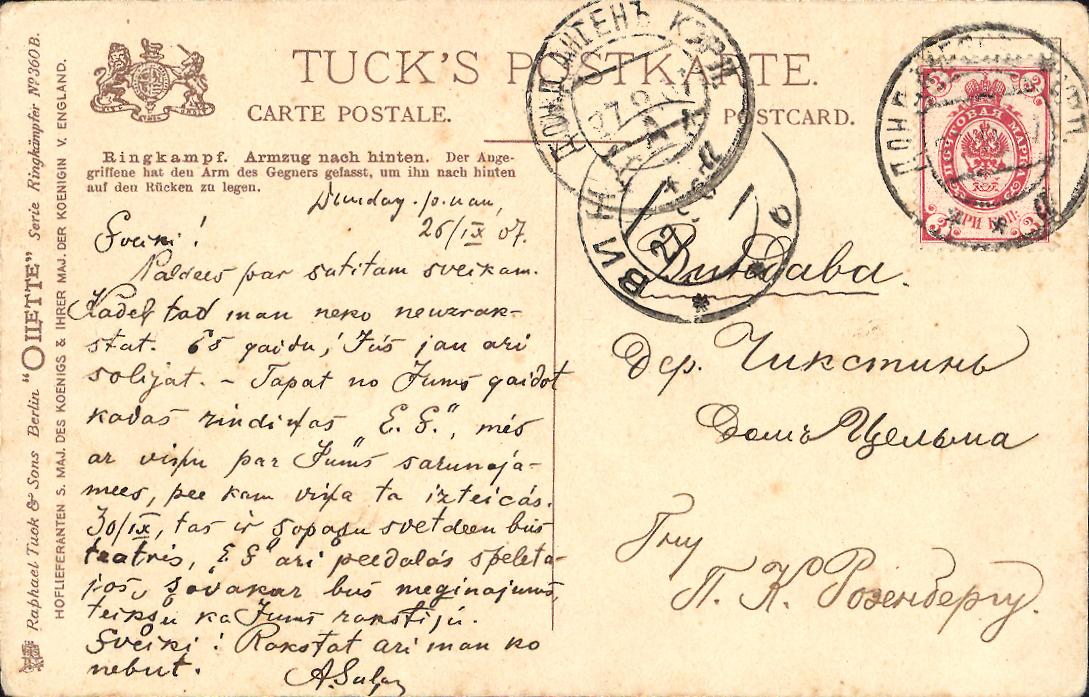 TUCK'S POSTKARTE.
CARTE POSTALE. POSTCARD.
Ringkampf. Armzug nach hinten. Der Ange-
griffene hat den Arm des Gegners gefasst, um ihn nach hinten
auf den Rücken zu legen.
Raphael Tuck & Sons Berlin "OILETTE" Serie Ringkämpfer Nº 360 B.
HOFLIEFERANTEN S. MAJ. DES KOENIGS & IHRER MAJ. DER KOENIGIN V. ENGLAND.
26/IX 07.
Sveiki!
Paldees par satitam sveikam.
Kadeļ tad man neko neuzrak-
stat. Es gaidu, Jūs jau ari
solijat. – Tapat no Jums gaidot
kadas zindiņas "E. G.", mēs
ar viņu par Jums sarunaja-
mees, pee kam viņa ta izteicās.
30/IX, tas ir šopašu svetdeen bus
teatris, "E G" ari peedalās speleta-
jos, šovakar bus meginajums,
teikšu ka Jums rakstiju.
Sveiki! Rakstat ari man ko
nebut.
ПОЧТОВАЯ МАРКА
3
3
ТРИ КОП.
3
3
Виндава.
Дер. Чикстинь
Домъ Цельма
Гну
П. К. Розенбергу.